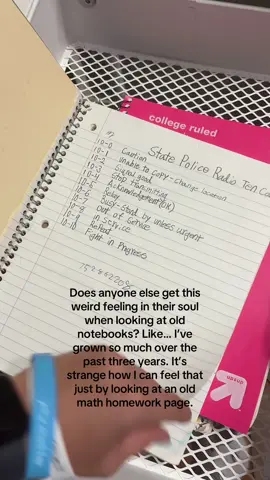 college ruled
State Police Radio Ten Co
10-0 Caution
10-1 Unable to copy - change location
10-2 Signal good
10-3 Stop Transmitting
10-4 Acknowledgement (OK)
10-5 Relay
10-6 Busy - Stand by unless urgent
10-7 Out of Service
10-8 in Service
10-9 Repeat
10-10 Fight in Progress
Does anyone else get this
weird feeling in their soul
when looking at old
notebooks? Like... I've
grown so much over the
past three years. It's
strange how I can feel that
just by looking at an old
math homework page.
up&up